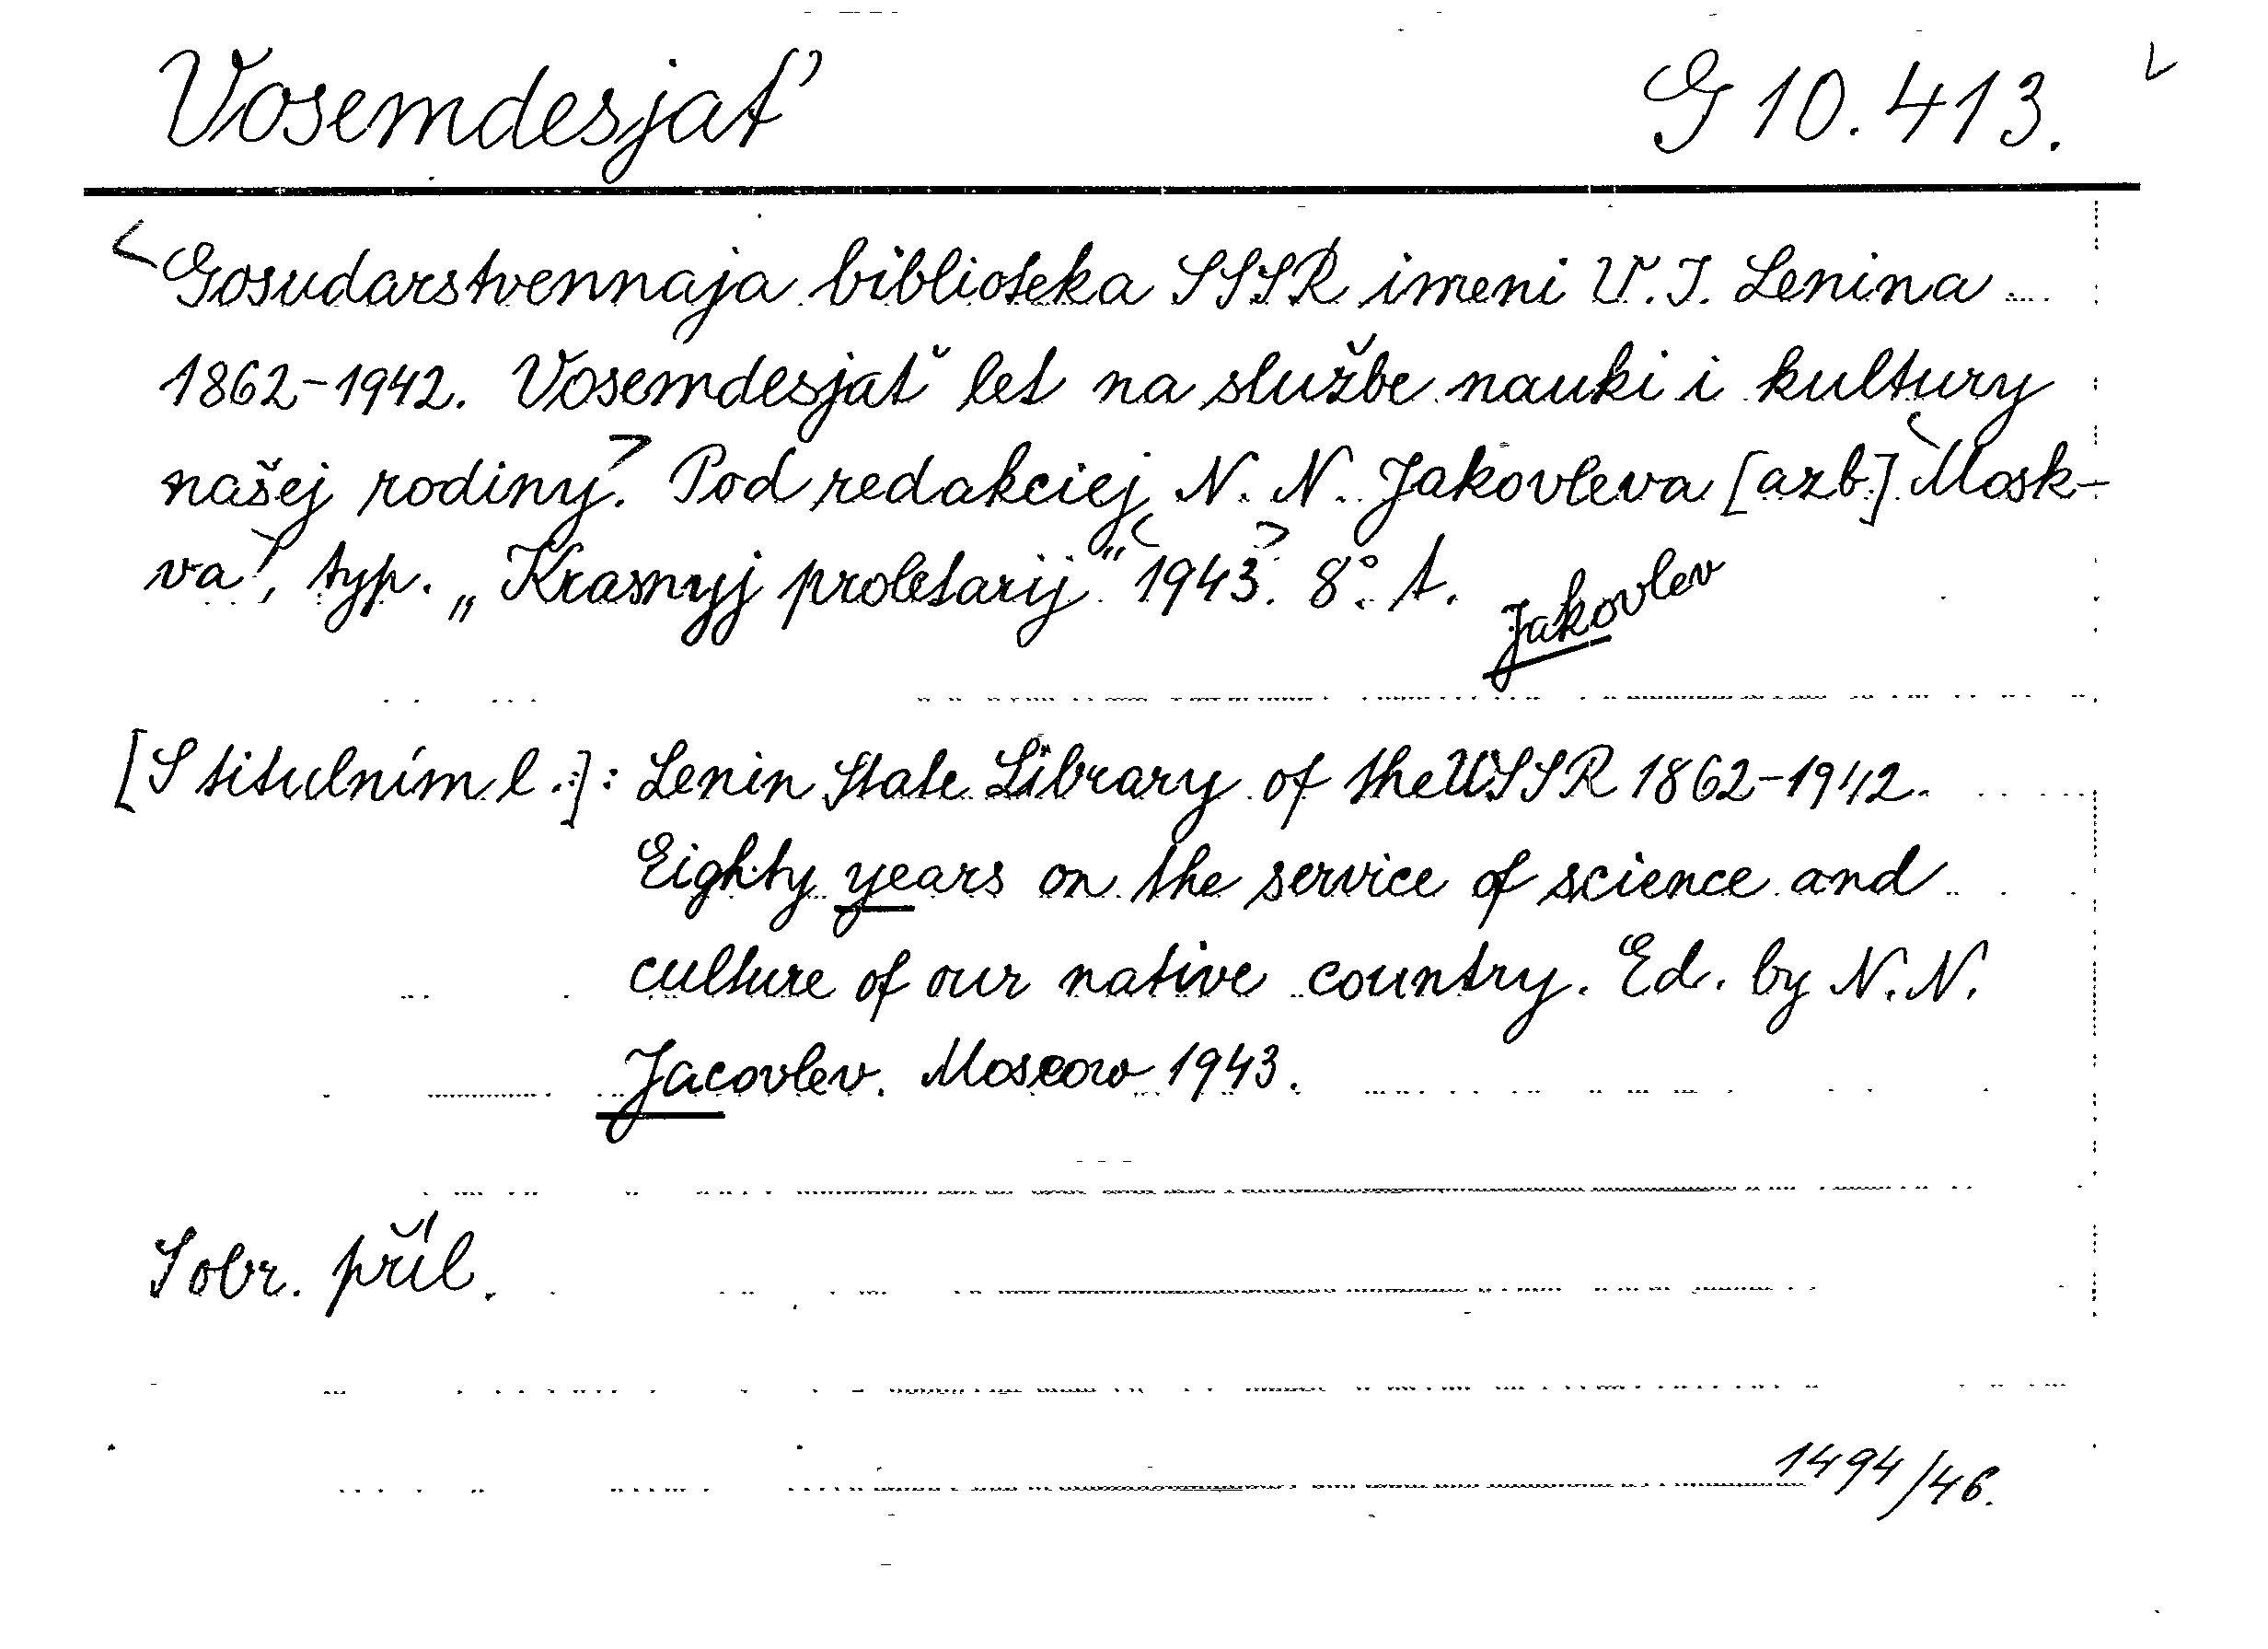 Vosemdesjat' G 10.413.
<Gosudarstvennaja biblioteka SSSR imeni V. I. Lenina
1862-1942. Vosemdesjať let na službe nauki i kultury
našej rodiny.> Pod redakciej N. N. Jakovleva [azb.] <Mosk-
va>, typ. „Krasnyj proletarij" <1943>. 8°. t.
Jakovlev
[S titulním l.]: Lenin State Library of the USSR 1862-1942.
Eighty years on the service of science and
culture of our native country. Ed. by N. N.
Jacovlev. Moscow 1943.
S obr. příl.
1494/46.